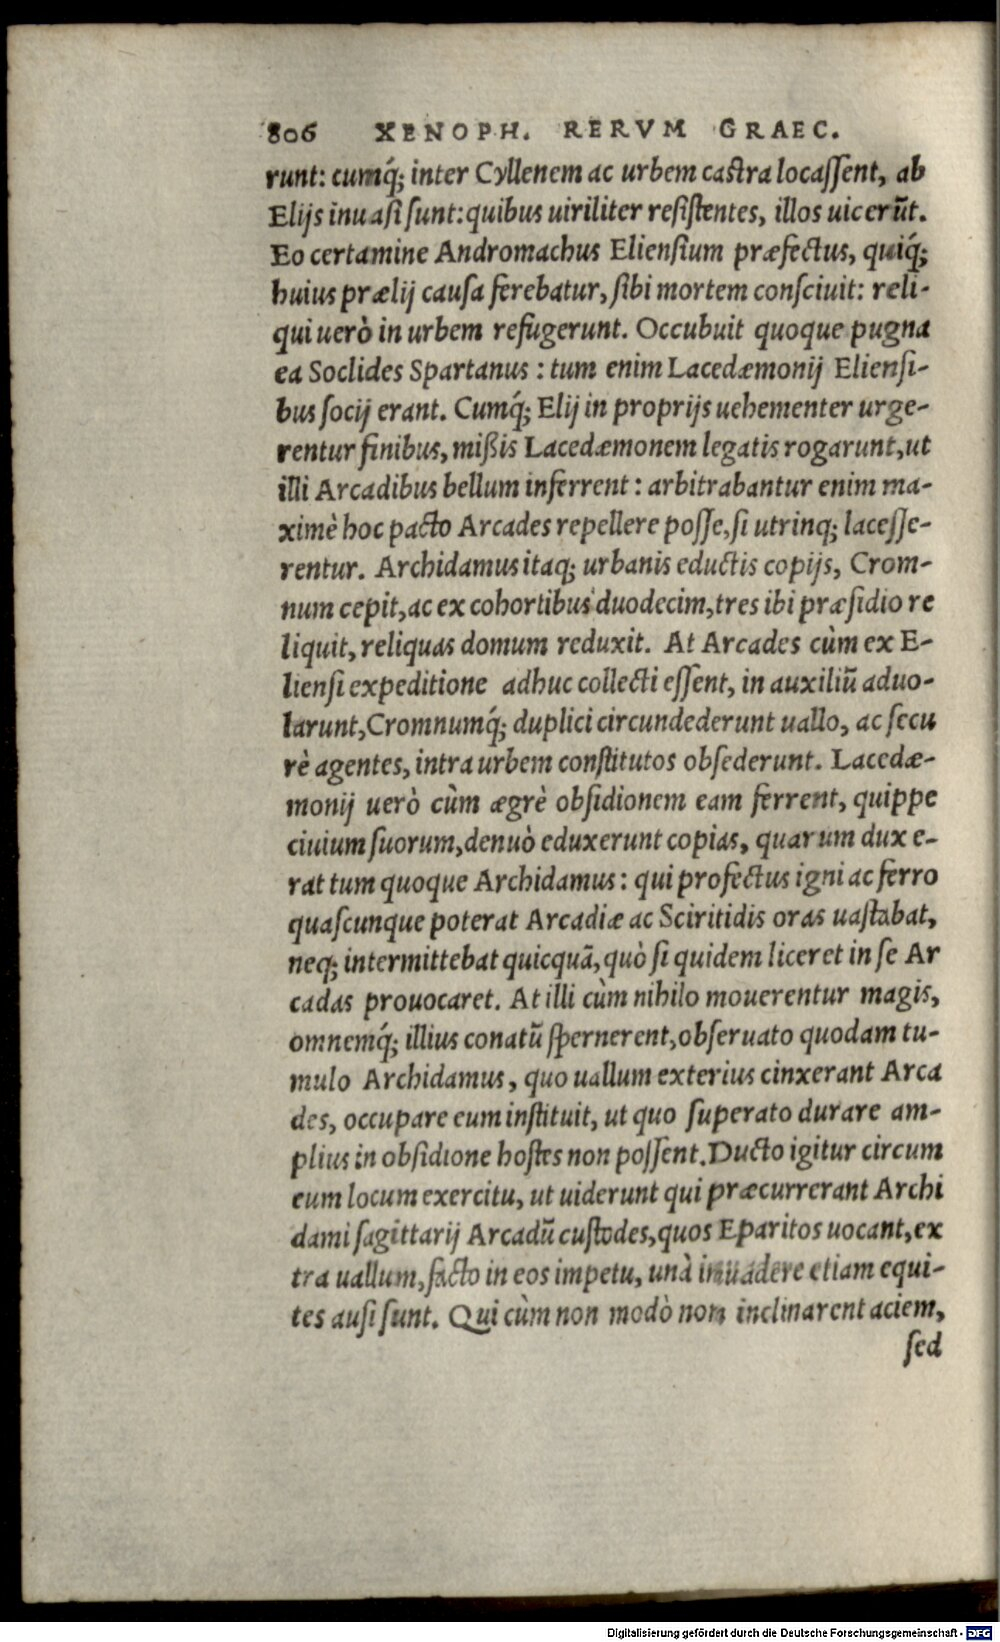 806 XENOPH. RERVM GRAEC.
runt: cumq́; inter Cyllenem ac urbem castra locaſſent, ab
Elijs inuaſi ſunt: quibus uiriliter reſiſtentes, illos uicerūt.
Eo certamine Andromachus Elienſium præfectus, quiq́;
huius prælij cauſa ferebatur, ſibi mortem conſciuit: reli-
qui uerò in urbem refugerunt. Occubuit quoque pugna
ea Soclides Spartanus : tum enim Lacedæmonij Elienſi-
bus ſocij erant. Cumq́; Elij in proprijs uehementer urge-
rentur finibus, mißis Lacedæmonem legatis rogarunt, ut
illi Arcadibus bellum inferrent : arbitrabantur enim ma-
ximè hoc pacto Arcades repellere poſſe, ſi utrinq; laceſſe-
rentur. Archidamus itaq; urbanis eductis copijs, Crom-
num cepit, ac ex cohortibus duodecim, tres ibi præſidio re
liquit, reliquas domum reduxit. At Arcades cùm ex E-
lienſi expeditione adhuc collecti eſſent, in auxiliū aduo-
larunt, Cromnumq́; duplici circundederunt uallo, ac ſecu
rè agentes, intra urbem conſtitutos obſederunt. Lacedæ-
monij uerò cùm ægrè obſidionem eam ferrent, quippe
ciuium ſuorum, denuò eduxerunt copias, quarum dux e-
rat tum quoque Archidamus: qui profectus igni ac ferro
quaſcunque poterat Arcadiæ ac Sciritidis oras uaſtabat,
neq; intermittebat quicquā, quò ſi quidem liceret in ſe Ar
cadas prouocaret. At illi cùm nihilo mouerentur magis,
omnemq́; illius conatū ſpernerent, obſeruato quodam tu-
mulo Archidamus, quo uallum exterius cinxerant Arca
des, occupare eum inſtituit, ut quo ſuperato durare am-
plius in obſidione hoſtes non poſſent. Ducto igitur circum
eum locum exercitu, ut uiderunt qui præcurrerant Archi
dami ſagittarij Arcadū cuſtodes, quos Eparitos uocant, ex
tra uallum, facto in eos impetu, unà inuadere etiam equi-
tes auſi ſunt. Qui cùm non modò non inclinarent aciem,
ſed
Digitalisierung gefördert durch die Deutsche Forschungsgemeinschaft - DFG